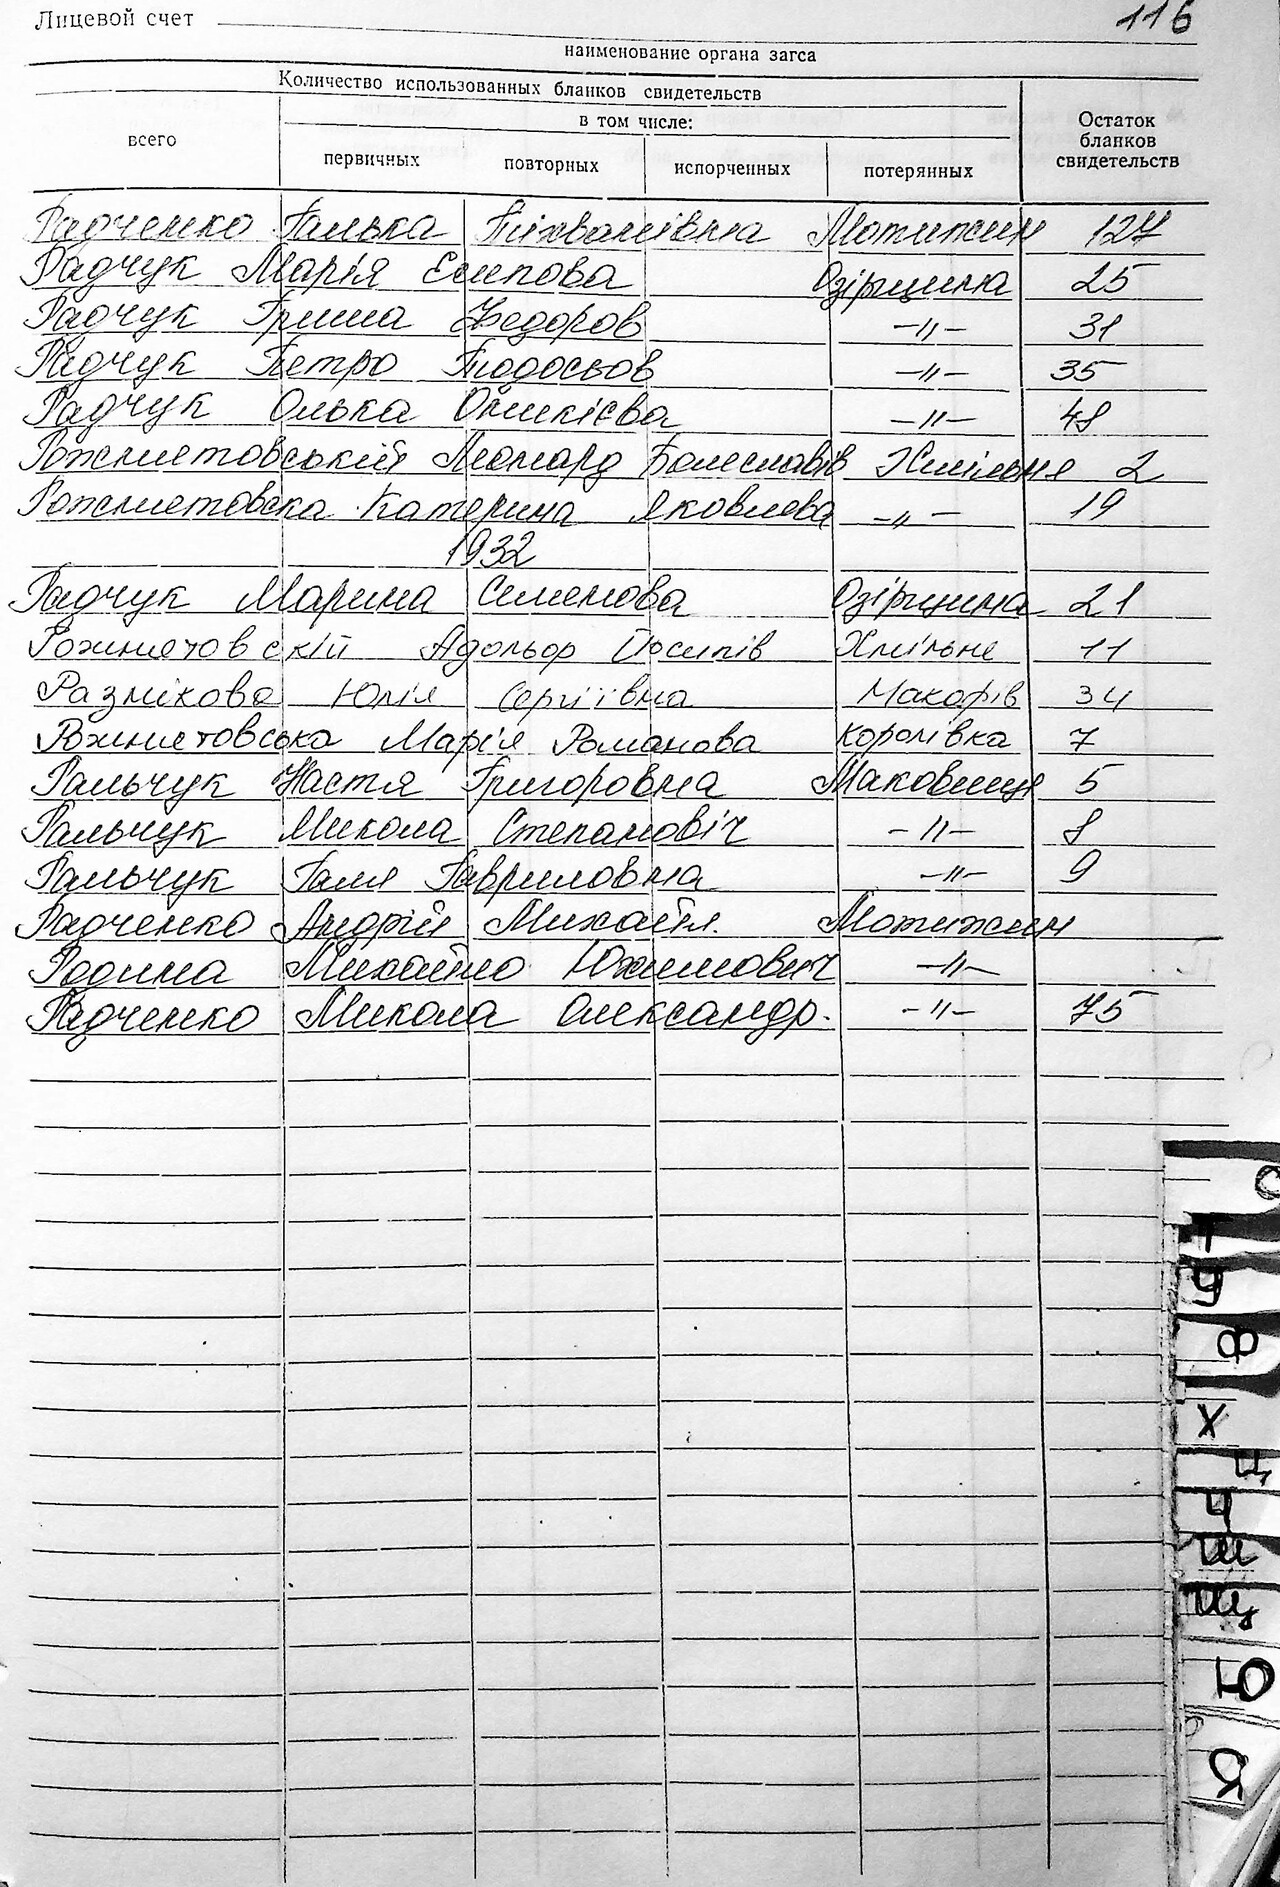 Лицевой счет 116
наименование органа загса
Количество использованных бланков свидетельств
всего
в том числе:
первичных повторных испорченных потерянных
Остаток
бланков
свидетельств
Радченко Галька Мотижин 127
Радчук Марія Есипова Озірщина 25
Радчук Гриша Федоров -"- 31
Радчук Петро Тодосьов -"- 35
Радчук Олька Оникієва -"- 48
Рожнетовський Леонард Болеславів Хмільне 2
Рожнетовска Катерина Яковлева -"- 19
1932
Радчук Марина Семенова Озірщина 21
Рожнетовскій Адольф Йосипів Хмільне 11
Разнікова Юлія Сергіївна Макарів 34
Рожнетовська Марія Романова Королівка 7
Ральчук Настя Григоровна Маковище 5
Ральчук Микола Степановіч -"- 8
Ральчук Галя Гавриловна -"- 9
Радченко Андрій Михайл. Мотижин
Родина Михайло Юхимович -"-
Радченко Микола Олександр. -"- 75
С
Т
У
Ф
Х
Ц
Ч
Ш
Щ
Ю
Я